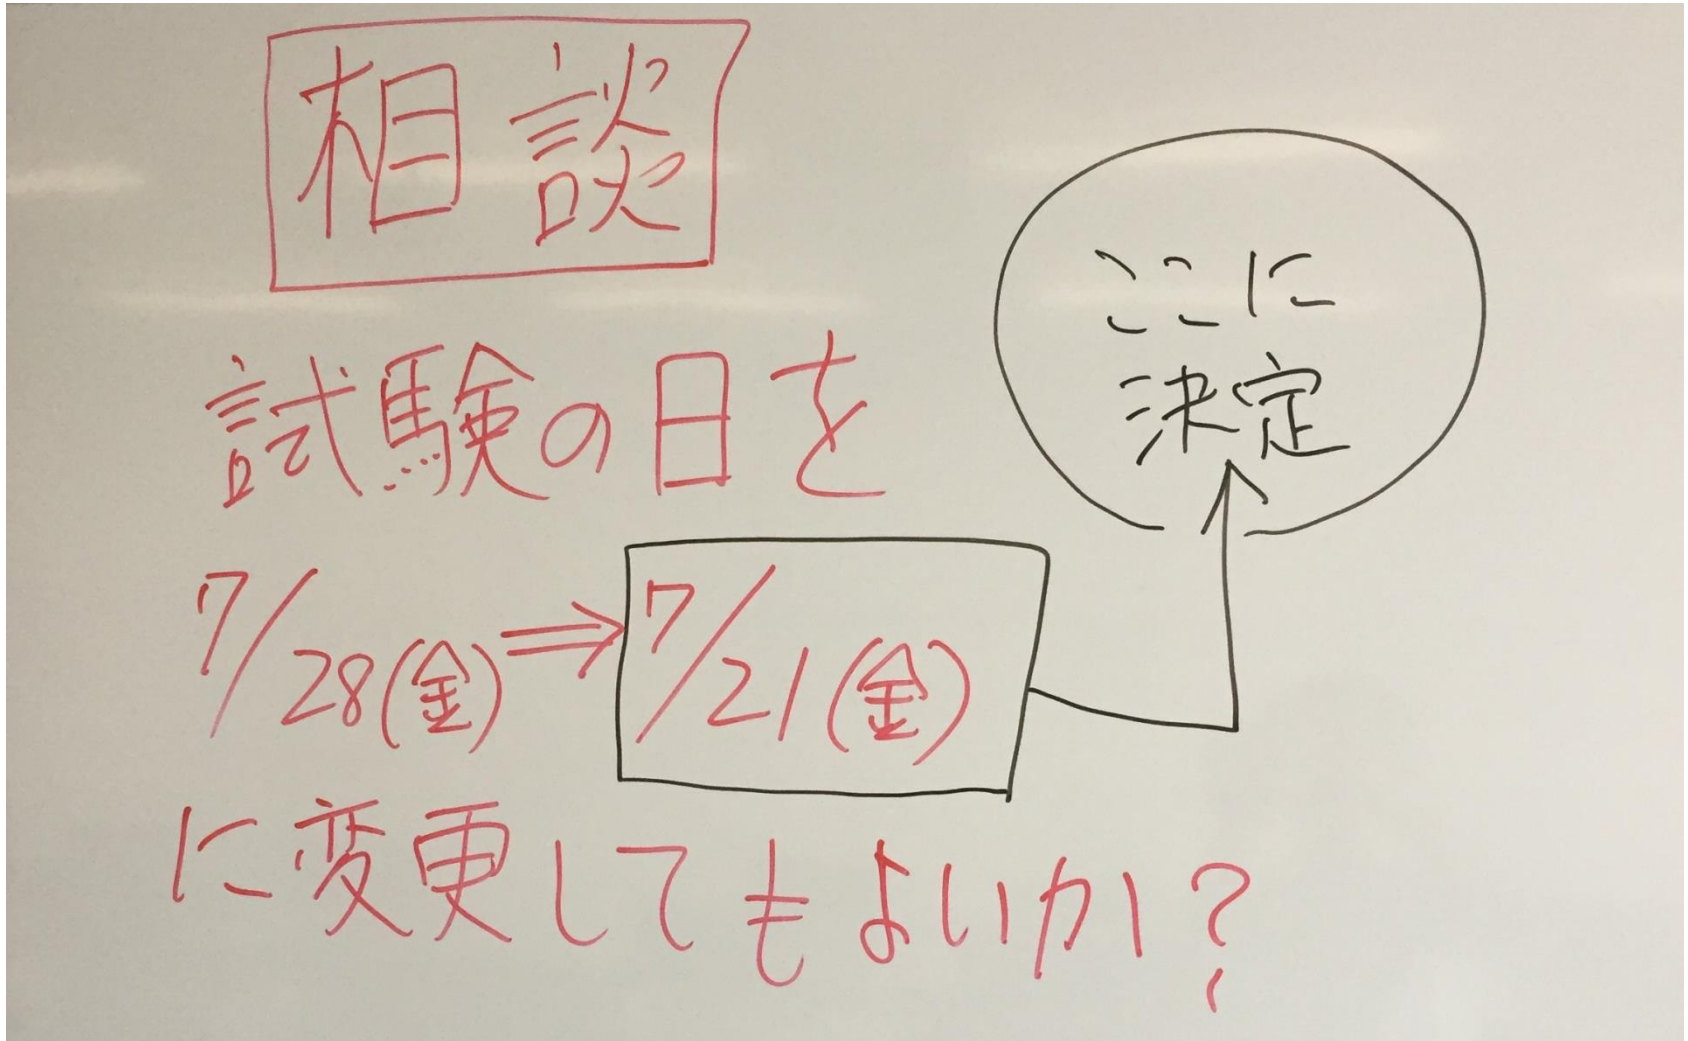 相談
試験の日を
7/28(金)⇒7/21(金)
に変更してもよいか?
ここに
決定